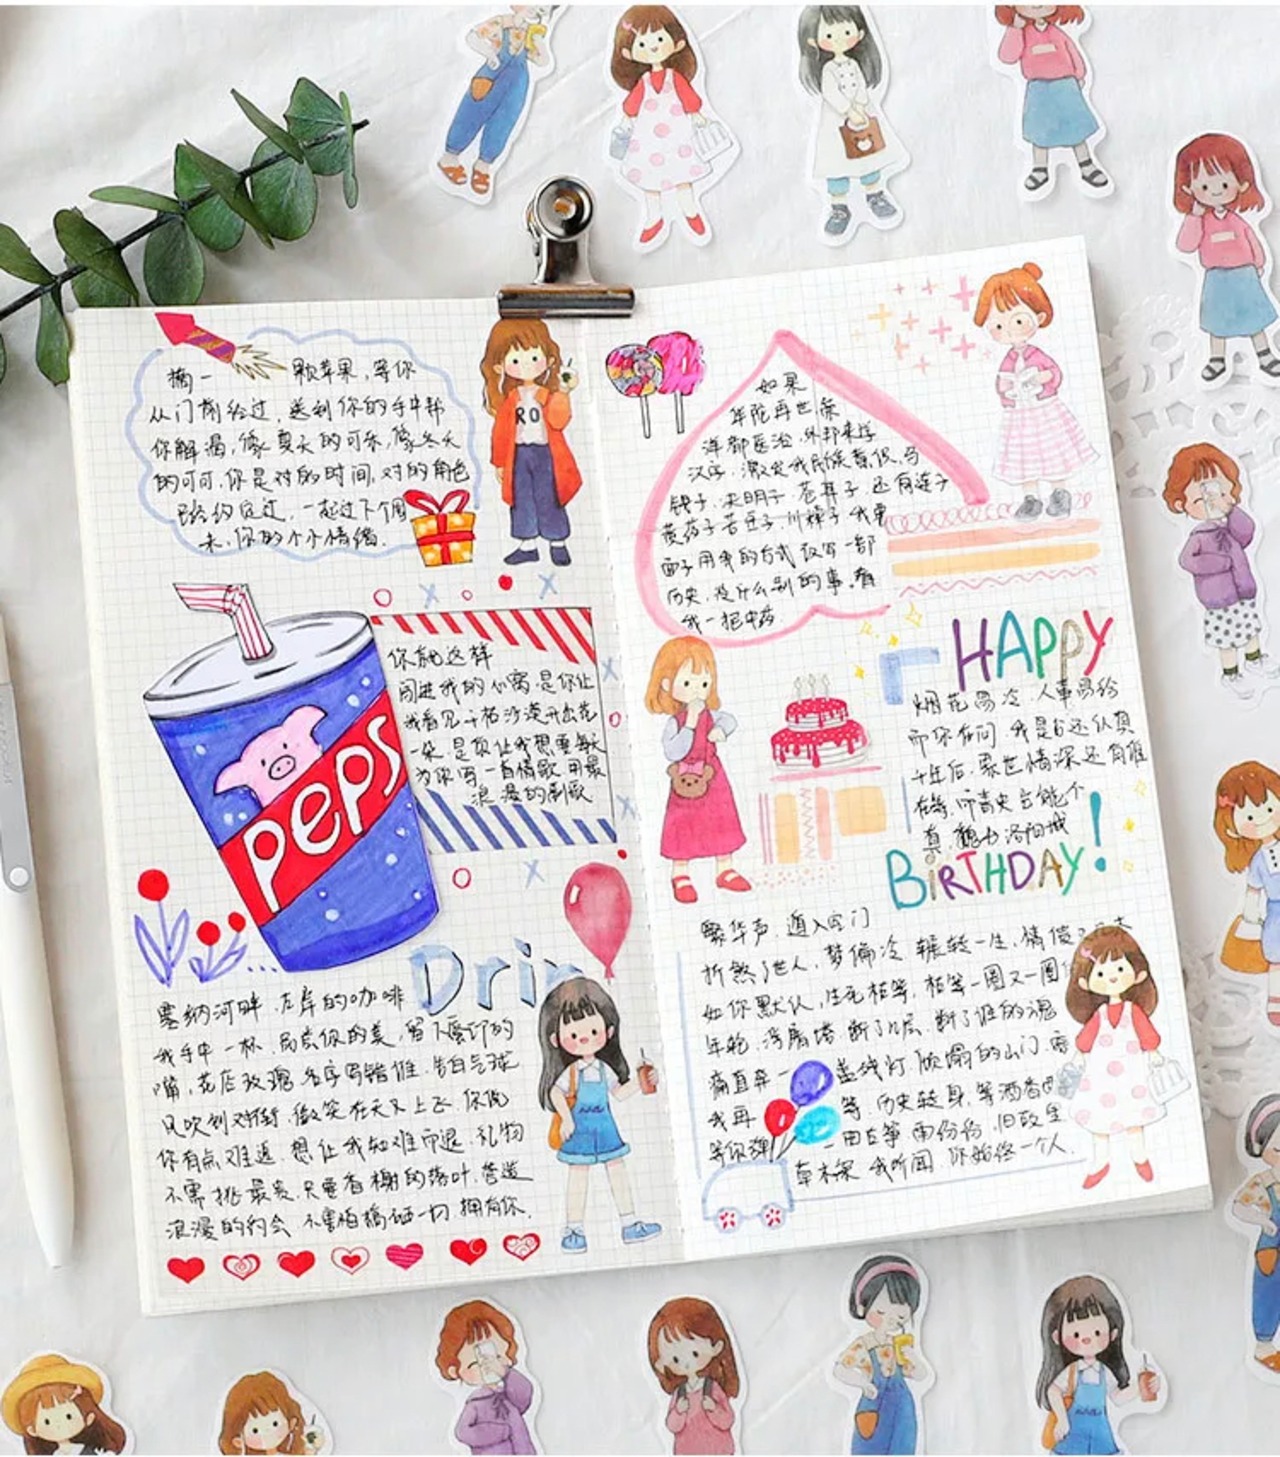 摘一 颗苹果,等你
从门前经过,送到你的手中帮
你解渴,像夏天的可乐,像冬天
的可可,你是对的时间,对的角色
已经约定过,一起过下个周
末,你的小小情绪.
RO
你就这样
闯进我的心窝.是你让
我看见干枯沙漠开出花
一朵.是你让我想要每天
为你写一首情歌.用最
浪漫的副歌
Peps
Drin
塞纳河畔.左岸的咖啡
我手中一杯.品尝你的美,留下唇印的
嘴,花店玫瑰.名字写错谁.告白气球
风吹到对街.微笑在天上飞.你说
你有点难追.想让我知难而退.礼物
不需挑最贵.只要香榭的落叶.营造
浪漫的约会 不害怕搞砸一切.拥有你.
如果
华陀再世.崇
洋都医治.外邦来学
汉字.激发我民族意识.马
钱子.决明子.苍耳子.还有莲子
黄药子苦豆子.川楝子 我要
面子 用我的方式 改写一部
历史.没什么别的事.
我一把中药
HAPPY
烟花易冷.人事易分
而你在问 我是否还认真
千年后.累世情深还有谁
在等.而青史岂能不
真.魏书洛阳城
BiRTHDAY!
繁华声.遁入空门
折煞了世人,梦偏冷 辗转一生.情债
如你默认,生死枯等.枯等一圈又一圈
年轮.浮屠塔.断了几层.断了谁的魂
痛直奔一 盏残灯 倾塌的山门.
我再 等.历史转身,等酒香
等你弹 一曲古筝 雨纷纷.旧故里
草木深 我听闻.你始终一个人.